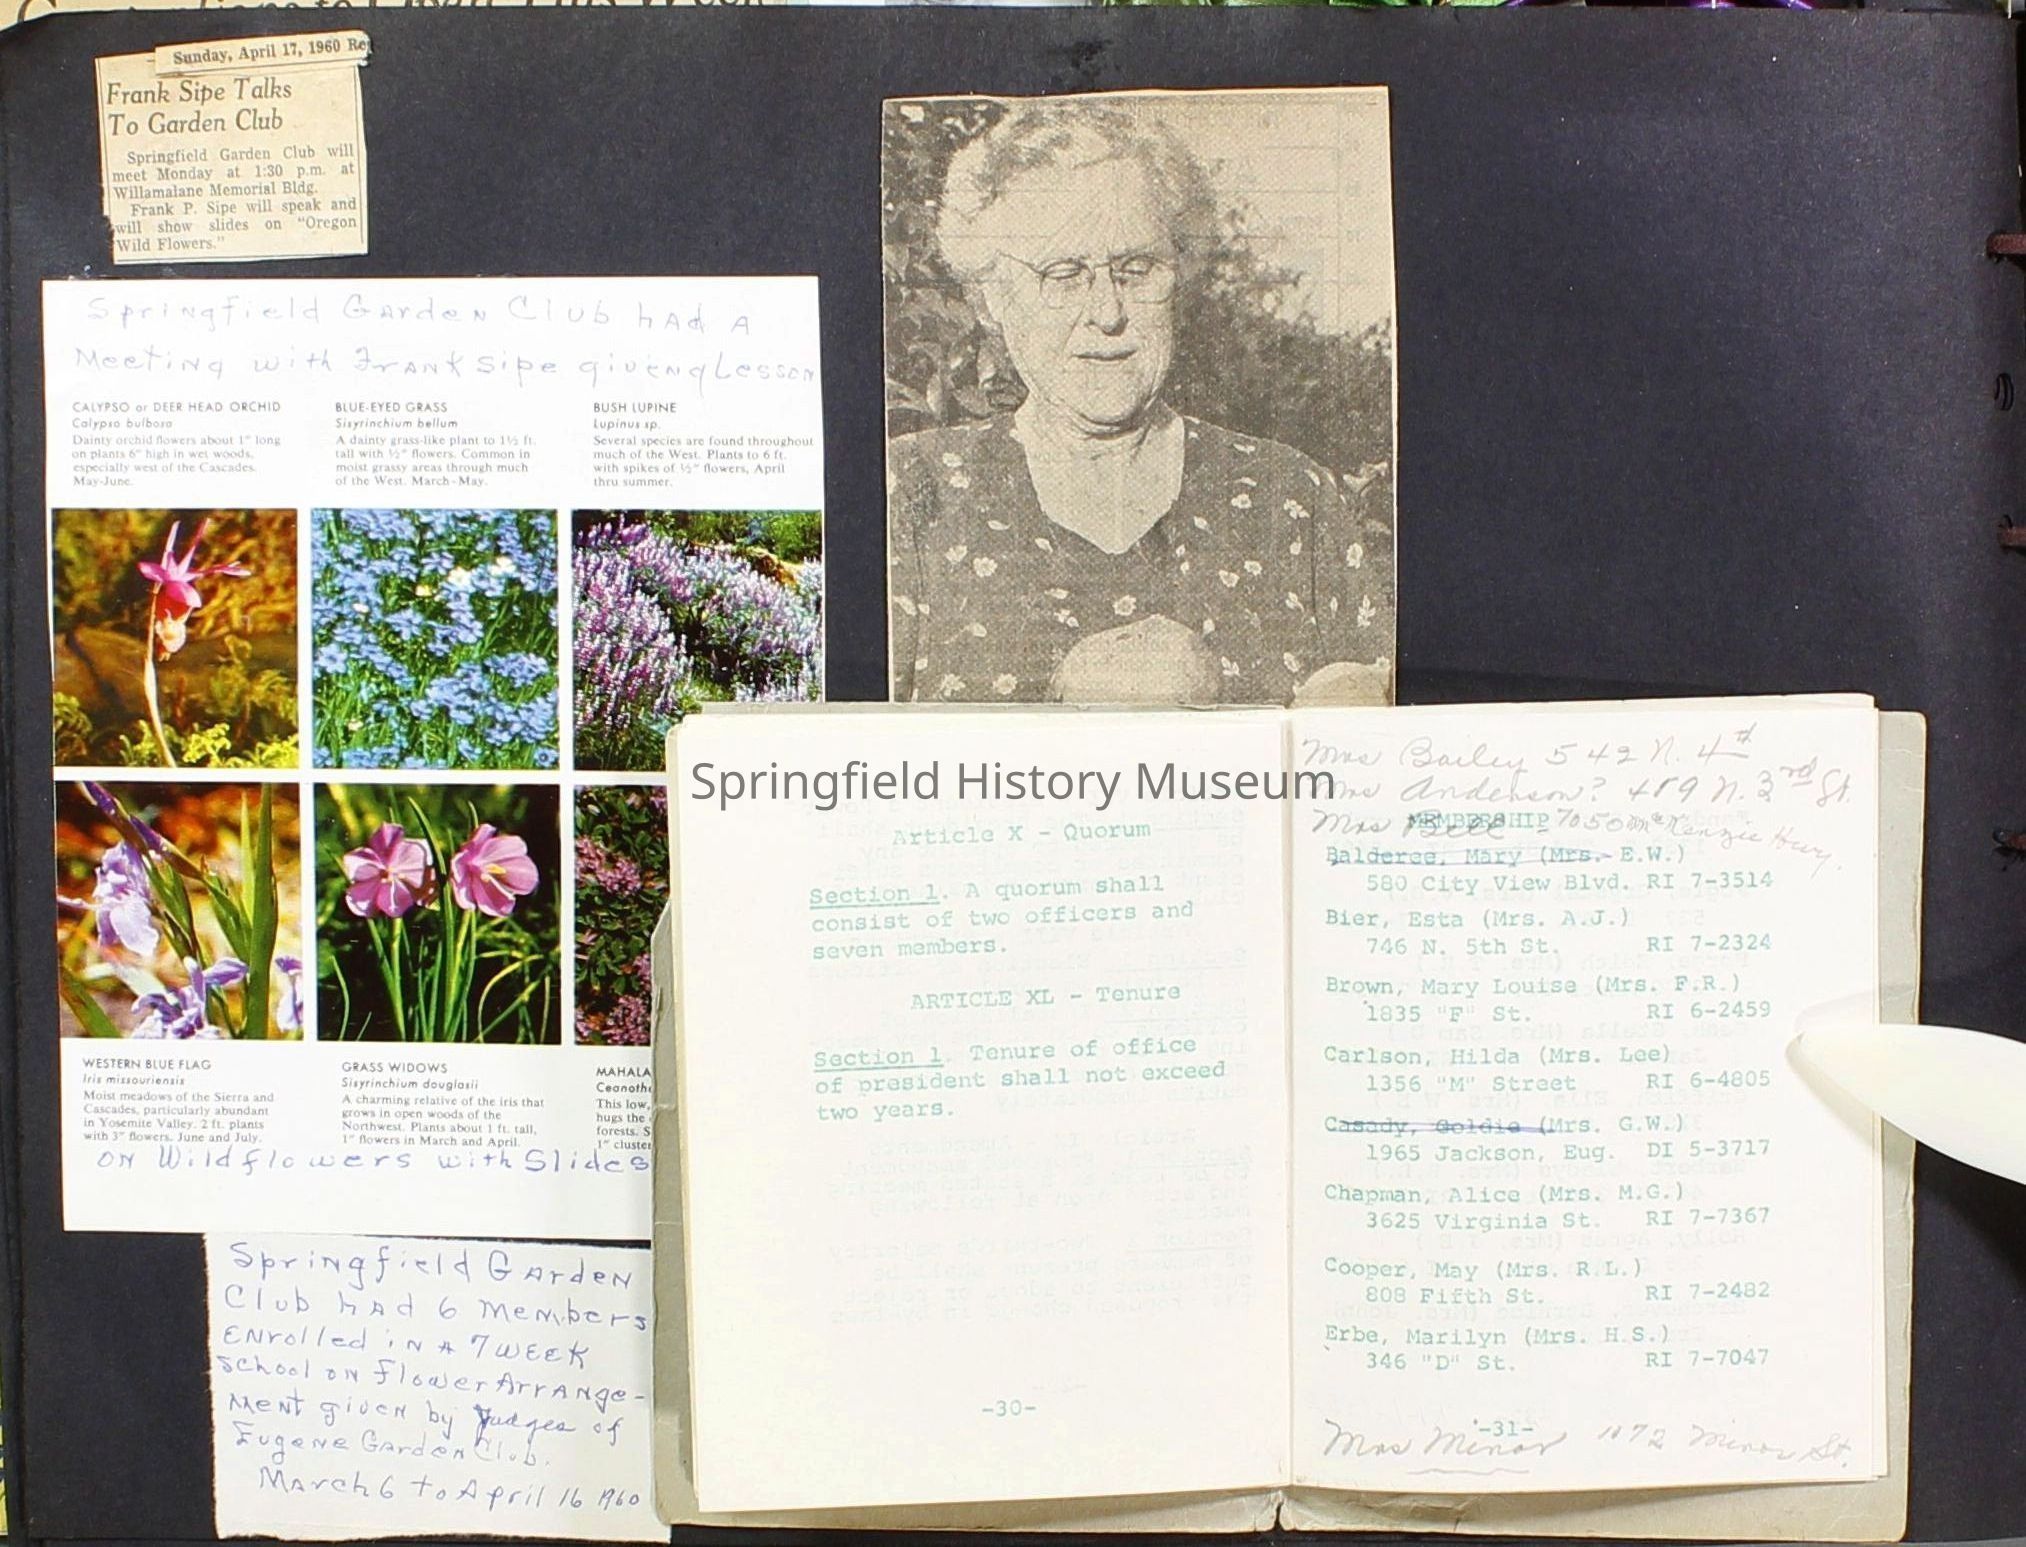 Sunday, April 17, 1960
Frank Sipe Talks
To Garden Club
Springfield Garden Club will
meet Monday at 1:30 p.m. at
Willamalane Memorial Bldg.
Frank P. Sipe will speak and
will show slides on "Oregon
Wild Flowers."
Springfield Garden Club had A
Meeting with Frank Sipe givenq Lesson
CALYPSO or DEER HEAD ORCHID
Calypso bulbosa
Dainty orchid flowers about 1" long
on plants 6" high in wet woods,
especially west of the Cascades.
May-June.
BLUE-EYED GRASS
Sisyrinchium bellum
A dainty grass-like plant to 1½ ft.
tall with ½" flowers. Common in
moist grassy areas through much
of the West. March-May.
BUSH LUPINE
Lupinus sp.
Several species are found throughout
much of the West. Plants to 6 ft.
with spikes of ½" flowers, April
thru summer.
WESTERN BLUE FLAG
Iris missouriensis
Moist meadows of the Sierra and
Cascades, particularly abundant
in Yosemite Valley. 2 ft. plants
with 3" flowers. June and July.
GRASS WIDOWS
Sisyrinchium douglasii
A charming relative of the iris that
grows in open woods of the
Northwest. Plants about 1 ft. tall,
1" flowers in March and April.
MAHALA
Ceanoth
This low,
hugs the
forests. S
1" cluster
ON Wildflowers with Slides
Springfield Garden
Club had 6 Members
Enrolled in A 7 WEEK
School on Flower Arrange-
Ment given by Judges of
Eugene Garden Club.
March 6 to April 16 1960
Springfield History Museum
Article X - Quorum
Section 1. A quorum shall
consist of two officers and
seven members.
ARTICLE XL - Tenure
Section 1. Tenure of office
of president shall not exceed
two years.
-30-
Mrs Bailey 542 N. 4th
Mrs Anderson? 489 N. 3rd St.
Mrs Bell - 7050 McKenzie Hwy.
MEMBERSHIP
Balderee, Mary (Mrs. E.W.)
580 City View Blvd. RI 7-3514
Bier, Esta (Mrs. A.J.)
746 N. 5th St. RI 7-2324
Brown, Mary Louise (Mrs. F.R.)
1835 "F" St. RI 6-2459
Carlson, Hilda (Mrs. Lee)
1356 "M" Street RI 6-4805
Casady, Goldie (Mrs. G.W.)
1965 Jackson, Eug. DI 5-3717
Chapman, Alice (Mrs. M.G.)
3625 Virginia St. RI 7-7367
Cooper, May (Mrs. R.L.)
808 Fifth St. RI 7-2482
Erbe, Marilyn (Mrs. H.S.)
346 "D" St. RI 7-7047
-31-
Mrs Minor 1172 Minor St.